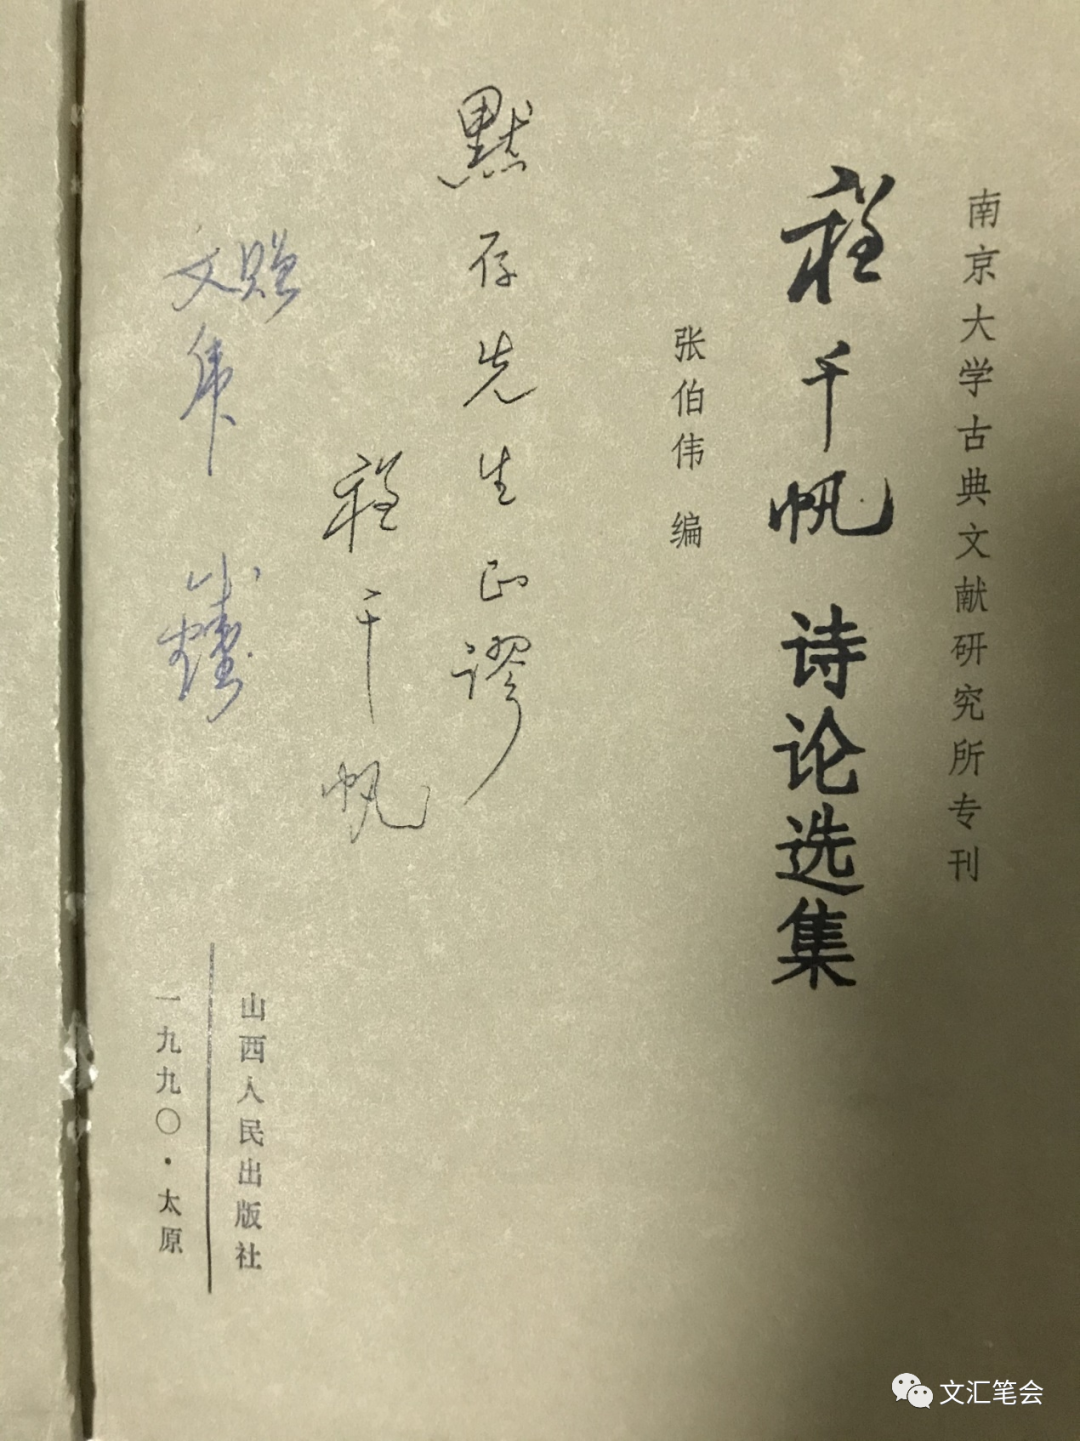 南京大学古典文献研究所专刊
程千帆 诗论选集
张伯伟 编
默存先生正谬
程千帆
赠
文虎
山西人民出版社
一九九〇·太原
文汇笔会